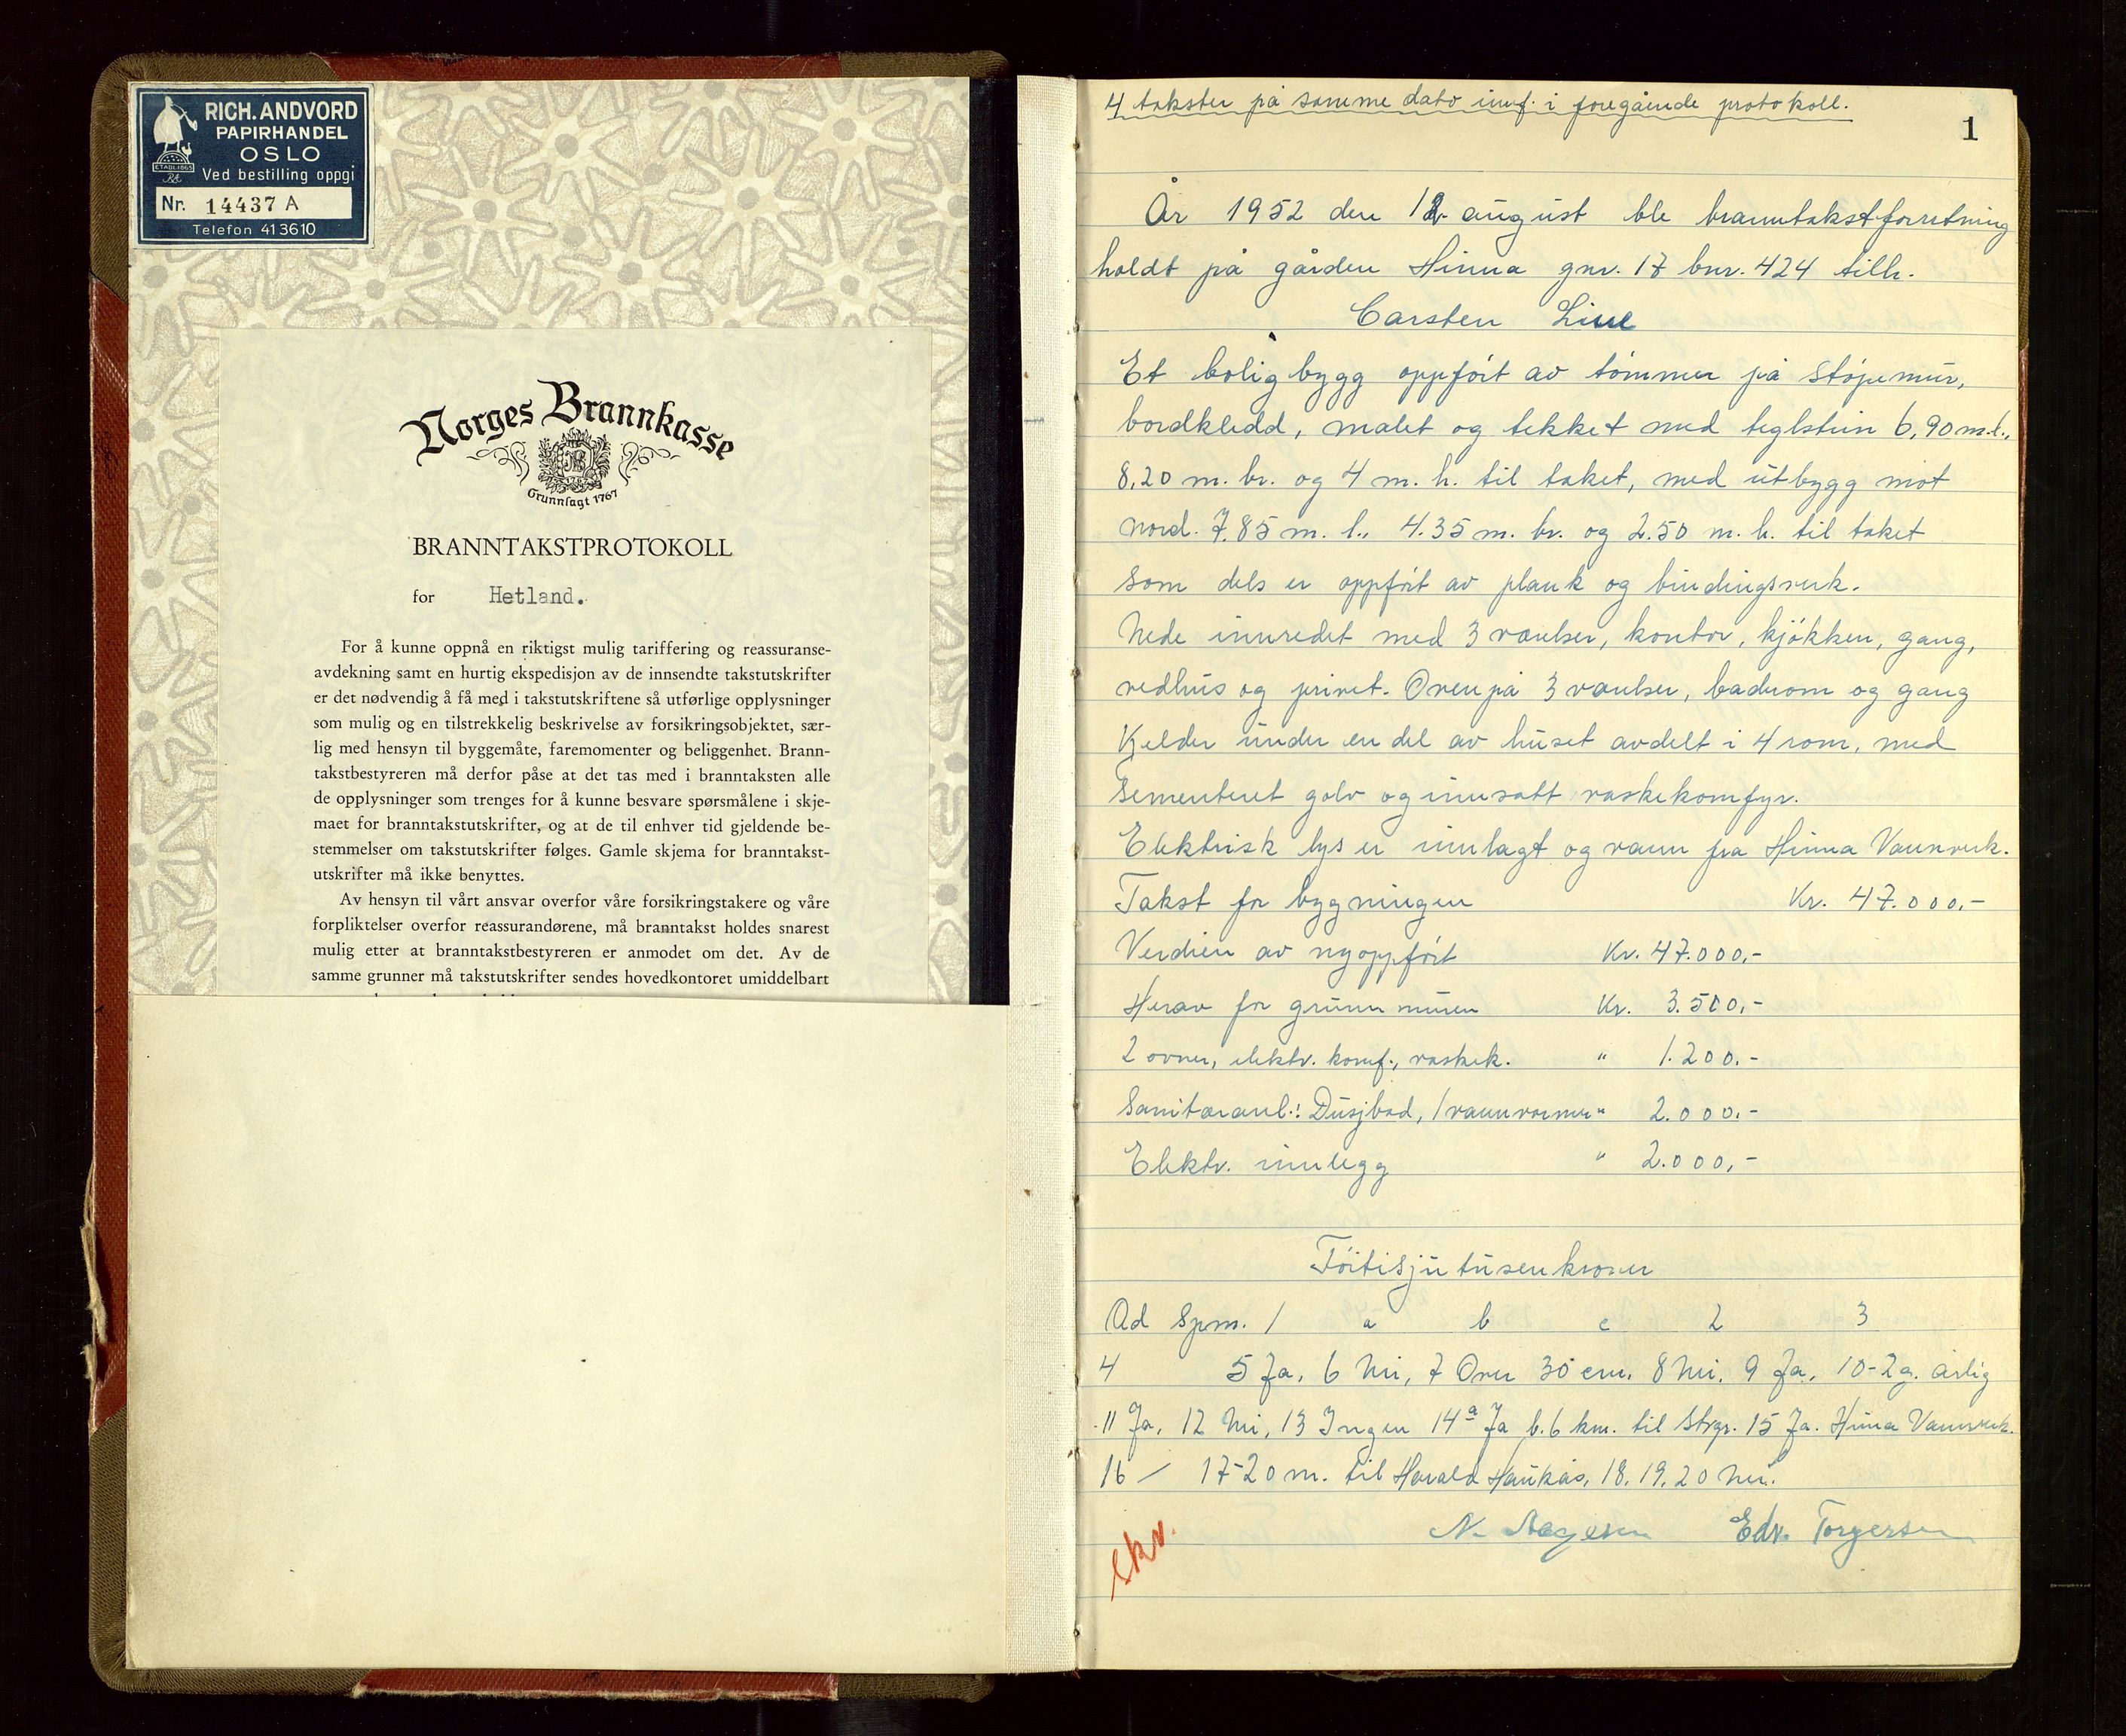 RICH. ANDVORD
PAPIRHANDEL
OSLO
ETABL. 1865
Ved bestilling oppgi
Nr. 14437 A
Telefon 413610
Norges Brannkasse
Grunnlagt 1767
BRANNTAKSTPROTOKOLL
for Hetland.
For å kunne oppnå en riktigst mulig tariffering og reassuranse-
avdekning samt en hurtig ekspedisjon av de innsendte takstutskrifter
er det nødvendig å få med i takstutskriftene så utførlige opplysninger
som mulig og en tilstrekkelig beskrivelse av forsikringsobjektet, sær-
lig med hensyn til byggemåte, faremomenter og beliggenhet. Brann-
takstbestyreren må derfor påse at det tas med i branntaksten alle
de opplysninger som trenges for å kunne besvare spørsmålene i skje-
maet for branntakstutskrifter, og at de til enhver tid gjeldende be-
stemmelser om takstutskrifter følges. Gamle skjema for branntakst-
utskrifter må ikke benyttes.
Av hensyn til vårt ansvar overfor våre forsikringstakere og våre
forpliktelser overfor reassurandørene, må branntakst holdes snarest
mulig etter at branntakstbestyreren er anmodet om det. Av de
samme grunner må takstutskrifter sendes hovedkontoret umiddelbart
4 takster på samme dato innf. i foregående protokoll.
1
År 1952 den 12. august ble branntakstforretning
holdt på gården Hinna gnr. 17 bnr. 424 tilh.
Carsten Line
Et bolig bygg oppført av tømmer på støpemur,
bordkledd, malet og tekket med teglstein 6,90 m.l.,
8,20 m. br. og 4 m. h. til taket, med utbygg mot
nord. 7.85 m. l., 4.35 m. br. og 2.50 m. h. til taket
som dels er oppført av plank og bindingsverk.
Nede innredet med 3 værelser, kontor, kjøkken, gang,
vedhus og privet. Ovenpå 3 værelser, badrom og gang
Kjelder under en del av huset avdelt i 4 rom, med
sementeret golv og innsatt vaskekomfyr.
Elektrisk lys er innlagt og vann fra Hinna Vannverk.
Takst for bygningen Kr. 47.000,-
Verdien av nyoppført Kr. 47.000,-
Herav for grunnmuren Kr. 3.500,-
2 ovner, elektr. komf., vaskek. " 1.200.-
Sanitæranl.: Dusjbad, 1 vannvarmer " 2.000.-
Elektr. innlegg " 2.000,-
Førtisjutusenkroner
Ad Spm. 1 a b c 2 3
4 5 Ja, 6 Nei, 7 Over 30 cm. 8 Nei. 9 Ja, 10-2 g. årlig
11 Ja, 12 Nei, 13 Ingen 14 a Ja b. 6 km. til Stvgr. 15 Ja. Hinna Vannverk.
16 / 17-20 m. til Harald Haukås, 18. 19. 20 Nei.
N. Aagesen Edv. Torgersen
skr.